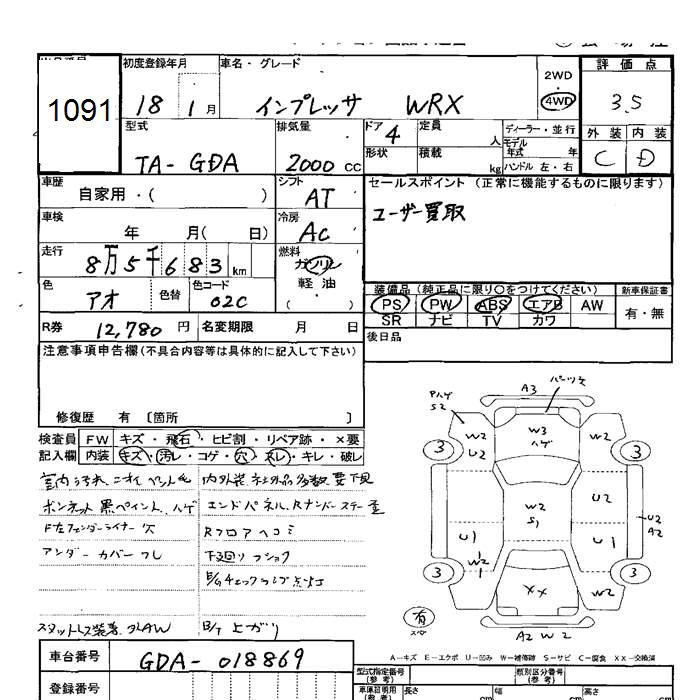 1091
初度登録年月 車名・グレード 2WD 評価点
18 1月 インプレッサ WRX 4WD 3.5
型式 排気量 ドア 4 定員 人 ディーラー・並行 外装 内装
TA-GDA 2000 cc 形状 積載 kg モデル年式 年 ハンドル 左・右 C D
車歴 自家用・( ) シフト AT セールスポイント(正常に機能するものに限ります)
車検 年 月( 日) 冷房 AC ユーザー買取
走行 8万5千683 km 燃料 ガソリン 軽油 ( )
色 アオ 色替 色コード 02C
装備品(純正品に限り○をつけてください) 新車保証書
PS PW ABS エアB AW 有・無
SR ナビ TV カワ
R券 12,780円 名変期限 月 日 後日品
注意事項申告欄(不具合内容等は具体的に記入して下さい)
修復歴 有 [箇所 ]
検査員 FW キズ・飛石・ヒビ割・リペア跡・×要
記入欄 内装 キズ・汚レ・コゲ・穴・ネレ・キレ・破レ
内外装 社外品多数 要下見
ボンネット 黒ペイント、ハゲ エンドパネル、Rナンバーステー
F左フェンダーライナー穴 Rフロアヘコミ
アンダーカバーフレ 下廻り
スタットレス装着
車台番号 GDA-018869
登録番号
A3
W2 U2 W3 ハゲ W2
3 3
W2 S1 U2
U1 W2 1 U1 U2 A2
3 3
XX W2
有 A2 W2
A-キズ E-エクボ U-凹み W-補修跡 S-サビ C-腐食 XX-交換済
型式指定番号(参考) 類別区分番号(参考)
長さ cm 幅 cm 高さ cm